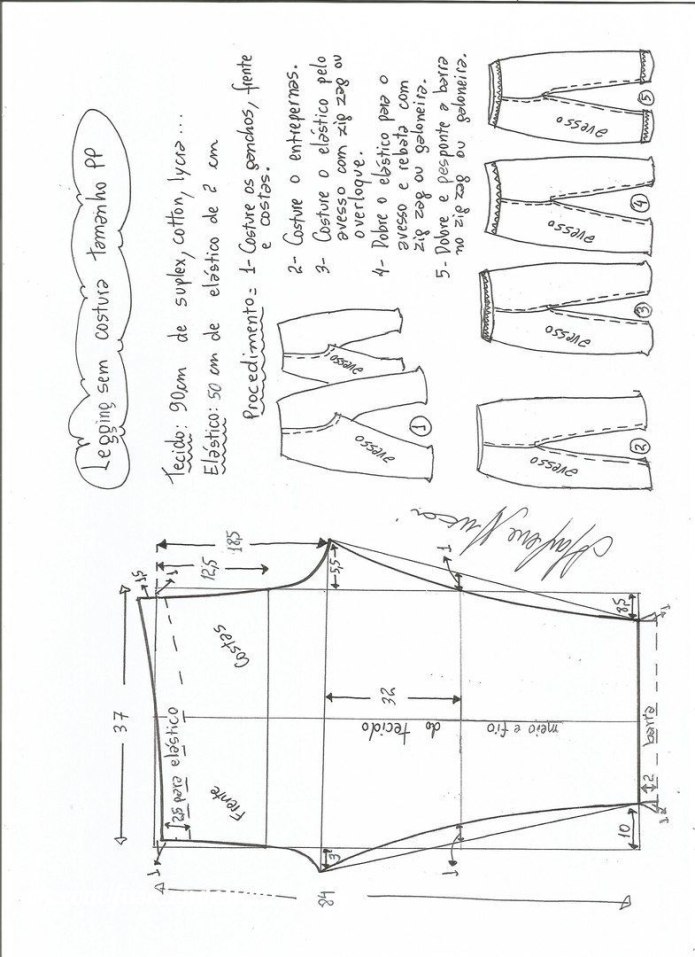 Legging sem costura tamanho PP
Tecido: 90cm de suplex, cotton, lycra...
Elástico: 50 cm de elástico de 2 cm
Procedimento = 1- Costure os ganchos, frente
e costas.
2- Costure o entrepernas.
3- Costure o elástico pelo
avesso com zig zag ou
overloque.
4- Dobre o elástico para o
avesso e rebata com
zig zag ou galoneira.
5- Dobre e pesponte a barra
no zig zag ou galoneira.
avesso
avesso
1
avesso
2
avesso
3
avesso
4
avesso
5
37
1,5
1
12,5
18,5
5,5
Costas
2,5 para elástico
Frente
1
3
32
meio e fio do tecido
1
1
8,5
10
2 barra
1,2
84